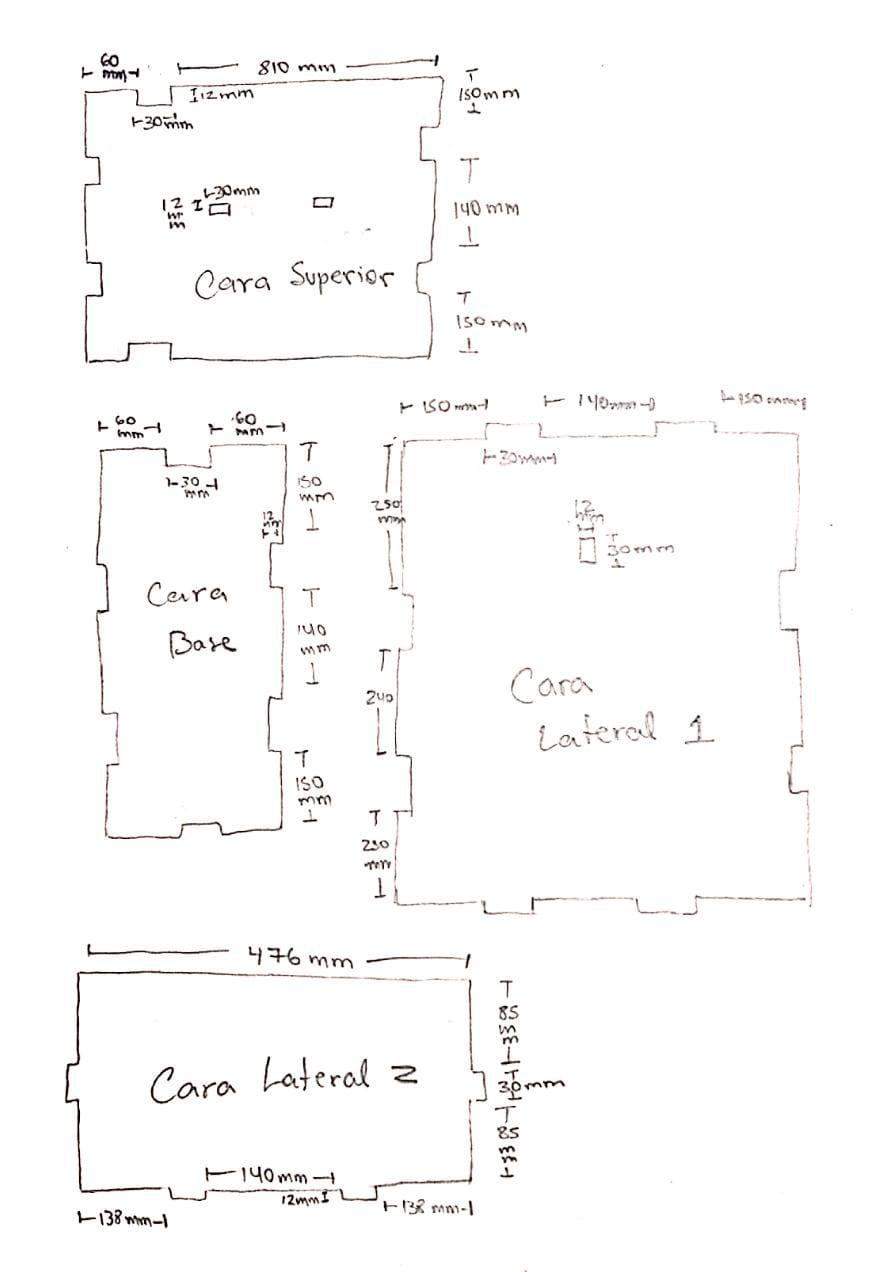 60
mm
810 mm
12mm
30mm
150mm
12
mm
30mm
140mm
Cara Superior
150mm
60
mm
60
mm
30
mm
150
mm
12
mm
Cara
Base
140
mm
150
mm
150mm
140mm
150mm
30mm
250
mm
12
mm
30mm
240
Cara
Lateral 1
250
mm
476mm
85
mm
Cara Lateral 2
30mm
85
mm
140mm
12mm
138mm
138mm